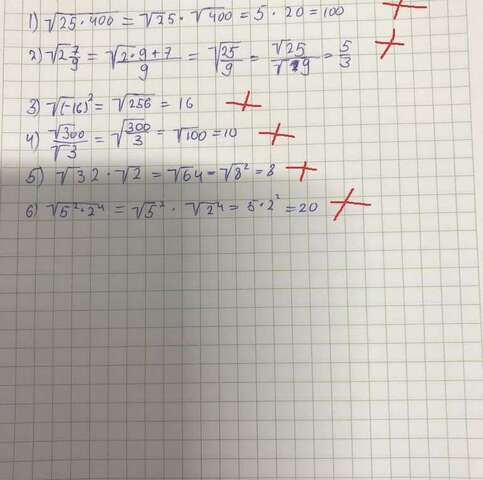 1) √25·400 = √25 · √400 = 5 · 20 = 100 +
2) √2 7/9 = √2·9+7/9 = √25/9 = √25/√9 = 5/3 +
3) √(-16)² = √256 = 16 +
4) √300/√3 = √300/3 = √100 = 10 +
5) √32 · √2 = √64 = √8² = 8 +
6) √5²·2⁴ = √5² · √2⁴ = 5·2² = 20 +